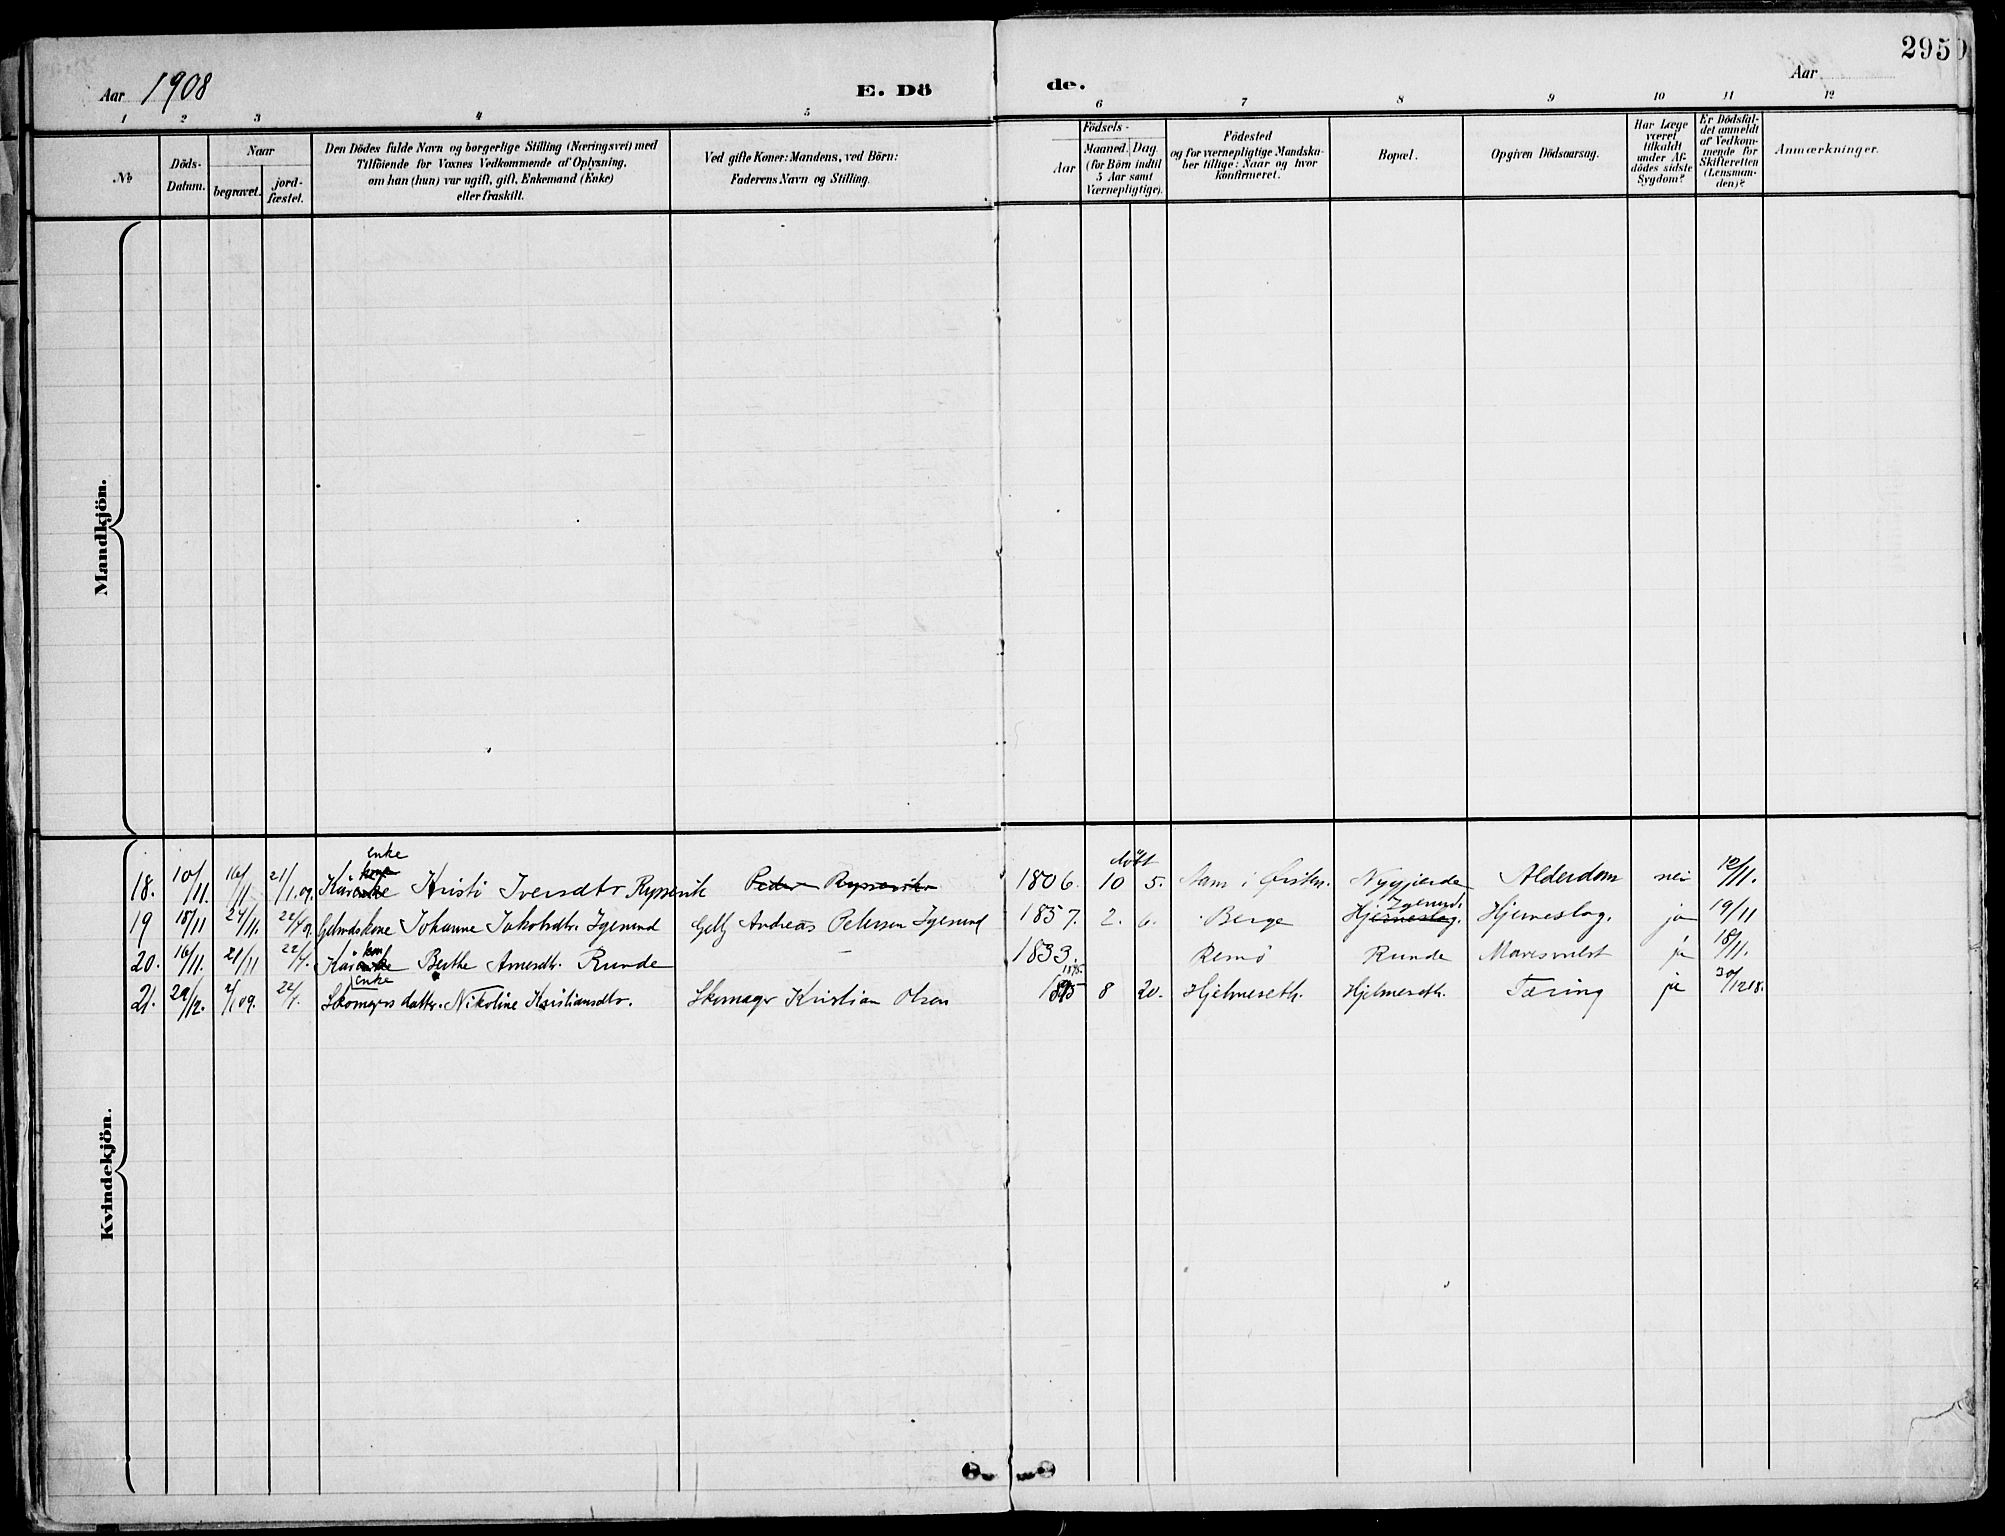 Aar 1908 E. Dö de. Aar 295
1 2 3 4 5 6 7 8 9 10 11 12
№
Döds-
Datum.
Naar
begravet.
jord-
fæstet.
Den Dödes fulde Navn og borgerlige Stilling (Næringsvei) med
Tilföiende for Voxnes Vedkommende af Oplysning,
om han (hun) var ugift, gift, Enkemand (Enke)
eller fraskilt.
Ved gifte Koner: Mandens, ved Börn:
Faderens Navn og Stilling.
Födsels-
Aar
Maaned. Dag.
(for Börn indtil
5 Aar samt
Værnepligtige).
Födested
og for værnepligtige Mandska-
ber tillige: Naar og hvor
Konfirmeret.
Bopæl.
Opgiven Dödsaarsag.
Har Læge
været
tilkaldt
under Af-
dödes sidste
Sygdom?
Er Dödsfal-
det anmeldt
af Vedkom-
mende for
Skifteretten
(Lensman-
den)?
Anmærkninger.
Mandkjön.
Kvindekjön.
enke
kone døbt
18. 10/11. 16/11 21/1.09. Kristi Iversdtr. Peder 1806. 10 5. i Alderdom nei 12/11.
Igesund.
19 18/11 24/11. Johanne Jakobsdtr. Igesund Andreas Petersen Igesund 1857. 2. 6. Berge Hjerneslag. Hjerneslag. ja 19/11
20. 16/11. 21/11 22/1. Berthe Arnesdtr. Runde – 1833. Remö Runde ja 18/11.
enke
21. 29/12. 2/1 09. 22/1. Skomagers datter. Nikoline Kristiansdtr. Skomager Kristian Olsen 8 20. Hjelmeseth. Hjelmeseth. Tæring ja 30/12 18.